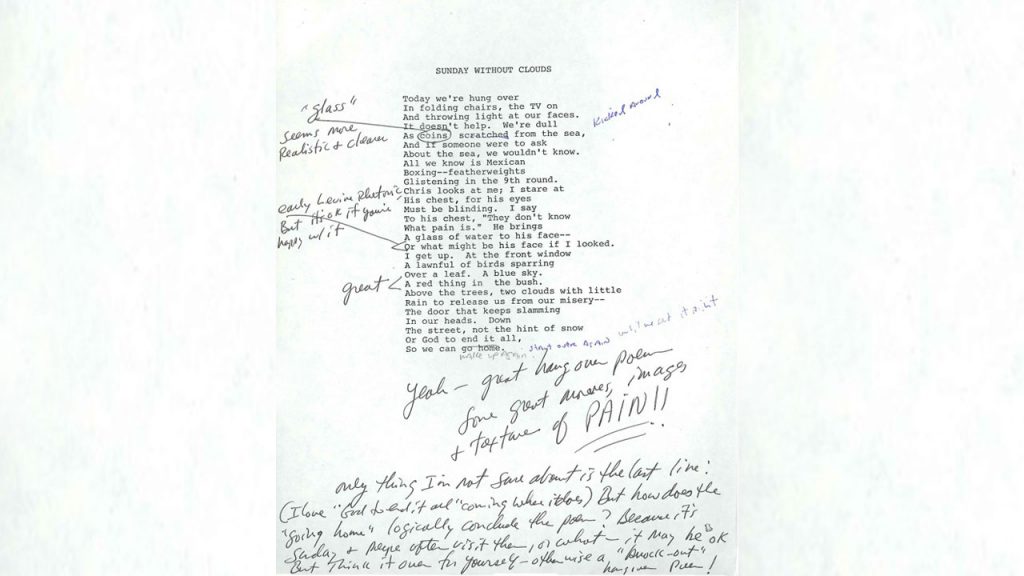 SUNDAY WITHOUT CLOUDS
"glass"
seems more
Realistic & clearer
Today we're hung over
In folding chairs, the TV on
And throwing light at our faces.
It doesn't help. We're dull
As coins scratched from the sea,
Kicked around
And if someone were to ask
About the sea, we wouldn't know.
All we know is Mexican
Boxing--featherweights
Glistening in the 9th round.
Chris looks at me; I stare at
His chest, for his eyes
Must be blinding. I say
To his chest, "They don't know
What pain is." He brings
A glass of water to his face--
Or what might be his face if I looked.
early Levine Rhetoric
But it's ok if you're
happy w/ it
I get up. At the front window
A lawnful of birds sparring
Over a leaf. A blue sky.
A red thing in the bush.
great
Above the trees, two clouds with little
Rain to release us from our misery--
The door that keeps slamming
In our heads. Down
The street, not the hint of snow
Or God to end it all,
So we can go home.
wake up again.
start over again
until we get it right
Yeah - great hangover poem
Some great moves, images
& texture of PAIN!!
only thing I'm not sure about is the last line:
(I love "God to end it all" coming where it does) But how does the
"going home" logically conclude the poem? Because it's
Sunday & people often visit then, or what - it may be ok
But think it over for yourself - otherwise a "knock-out"
hangover Poem!